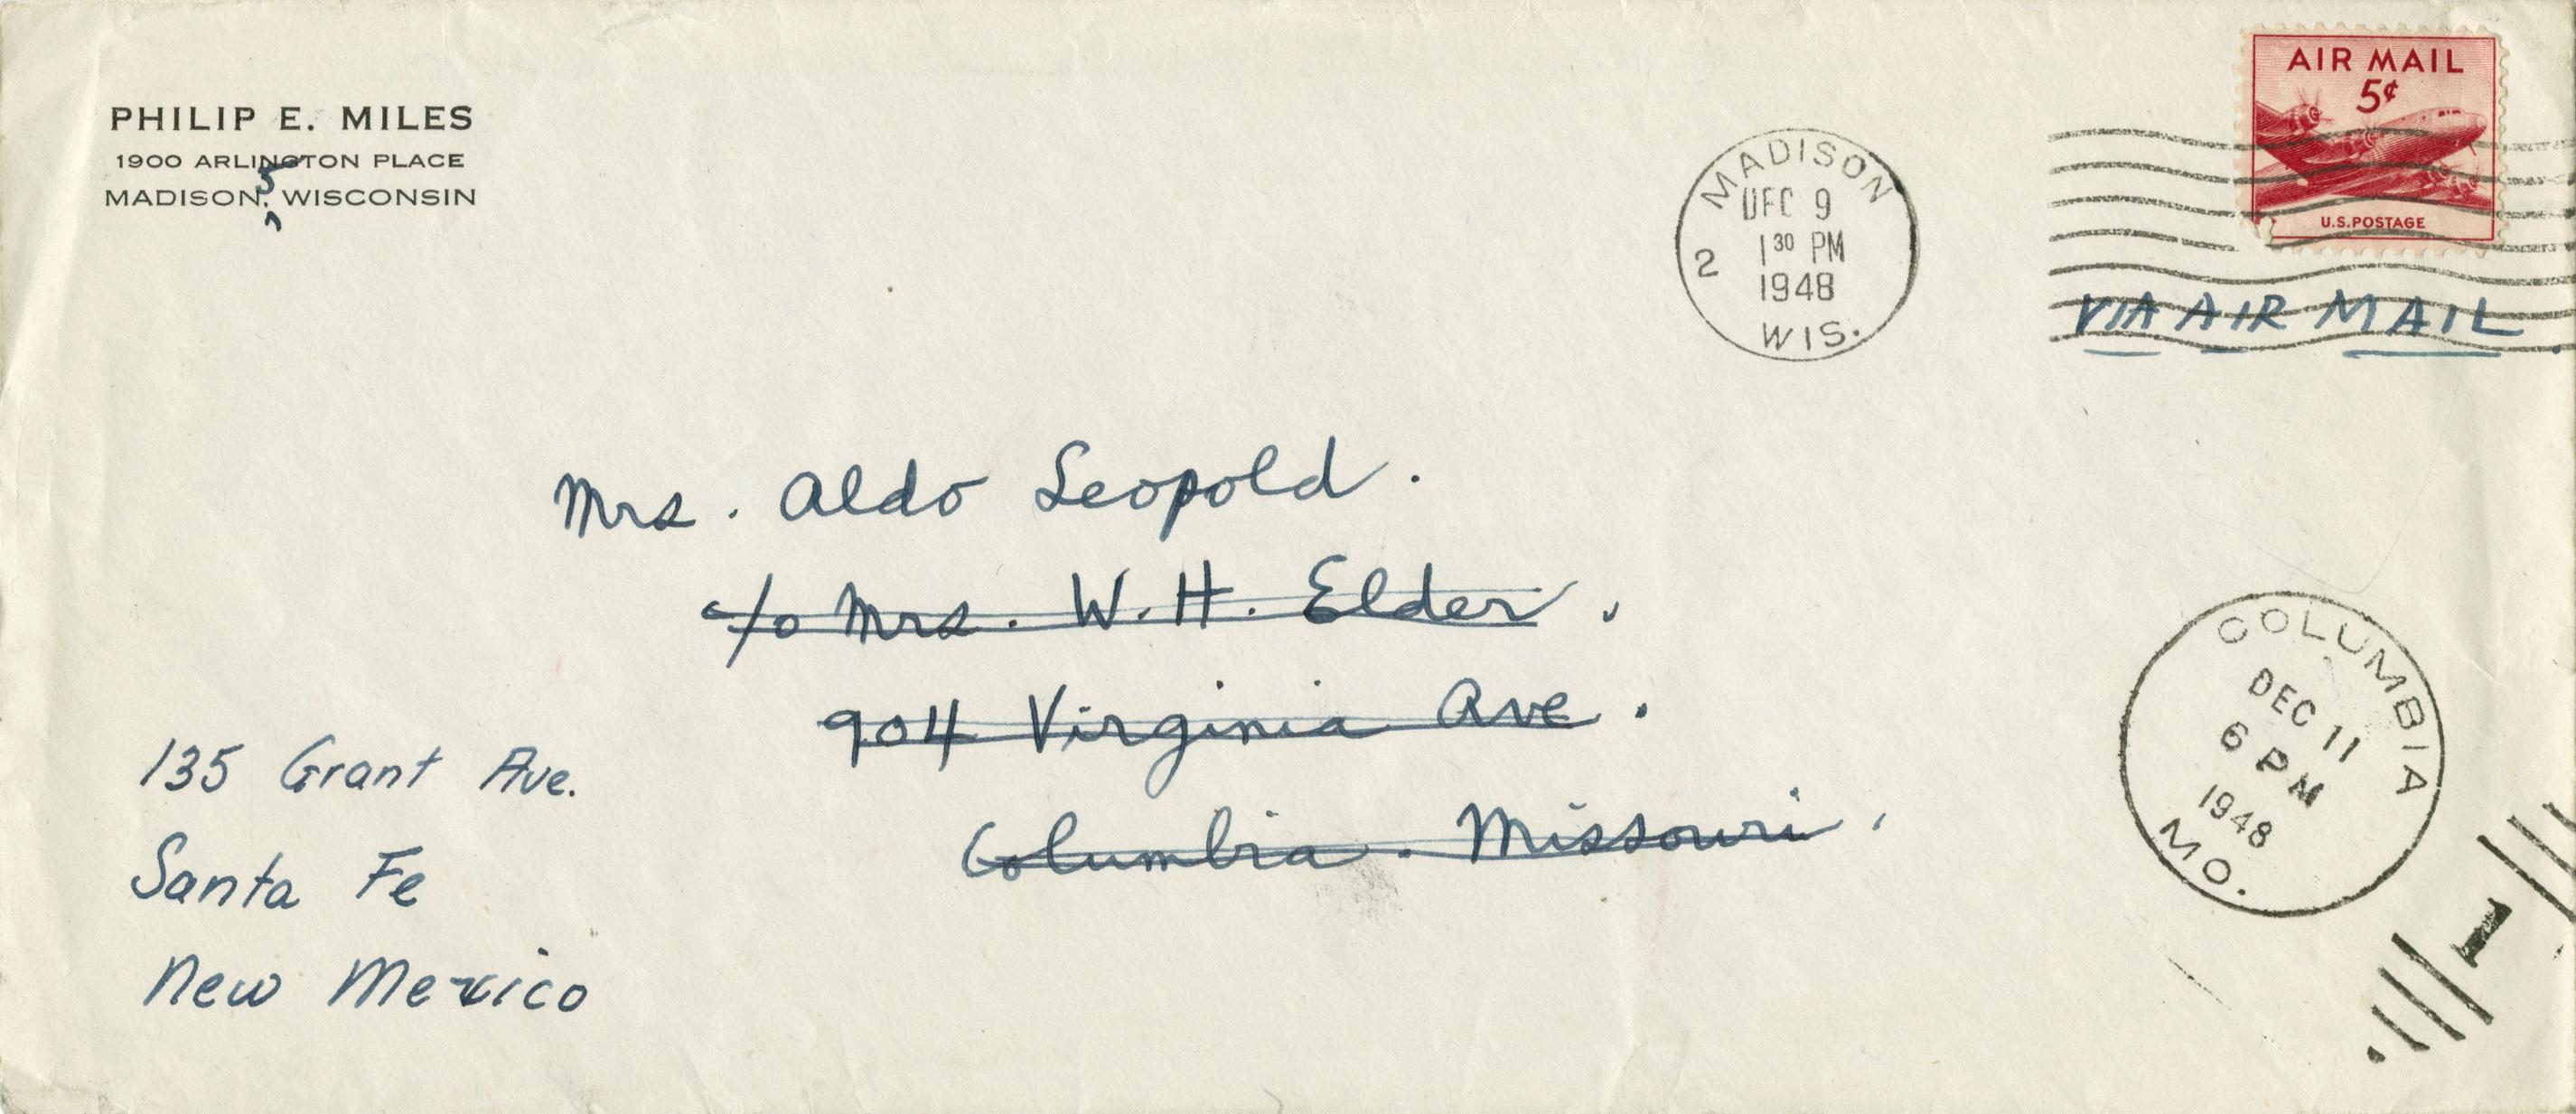 PHILIP E. MILES
1900 ARLINGTON PLACE
MADISON, 5 WISCONSIN
MADISON
DEC 9
1 30 PM
1948
2
WIS.
AIR MAIL
5¢
U.S. POSTAGE
VIA AIR MAIL.
Mrs. Aldo Leopold.
c/o Mrs. W. H. Elder,
904 Virginia Ave.
Columbia. Missouri.
135 Grant Ave.
Santa Fe
New Mexico
COLUMBIA
DEC 11
6 PM
1948
MO.
1